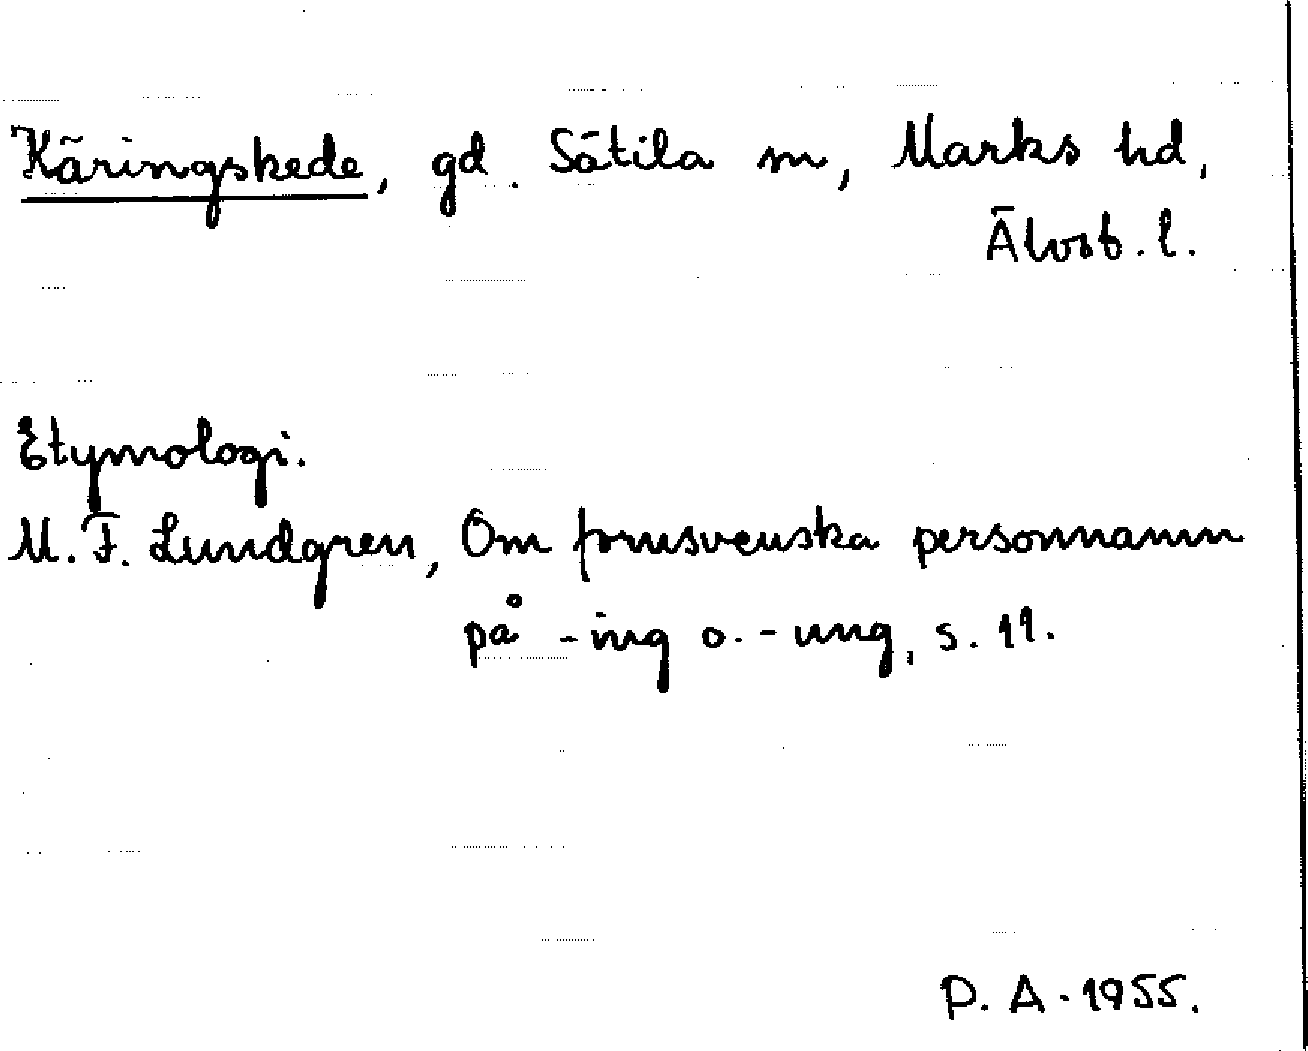 Käringskede, gd. Sätila sn, Marks hd,
Älvsb. l.
Etymologi.
M. F. Lundgren, Om fornsvenska personnamn
på -ing o. -ung, s. 11.
P. A. 1955.